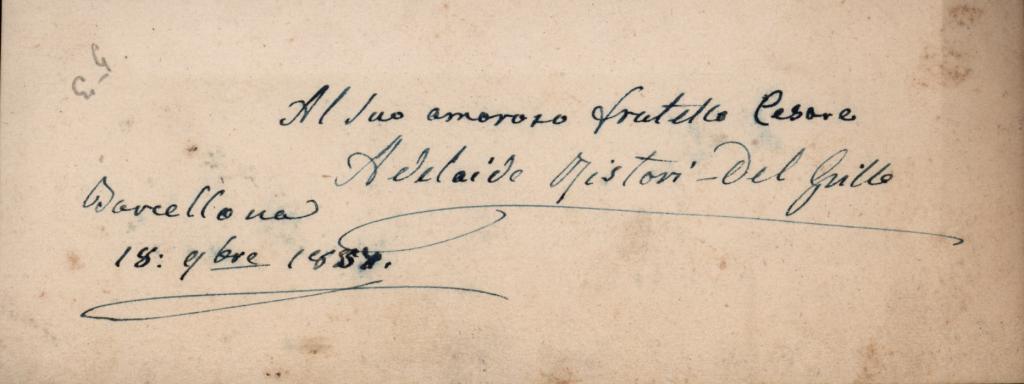 Al suo amoroso fratello Cesare
Adelaide Ristori-Del Grillo
Barcellona
18: 9bre